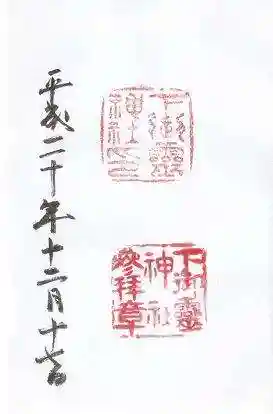 下御靈
神社印
下御靈
神社
參拜章
平成二十年十二月十七日